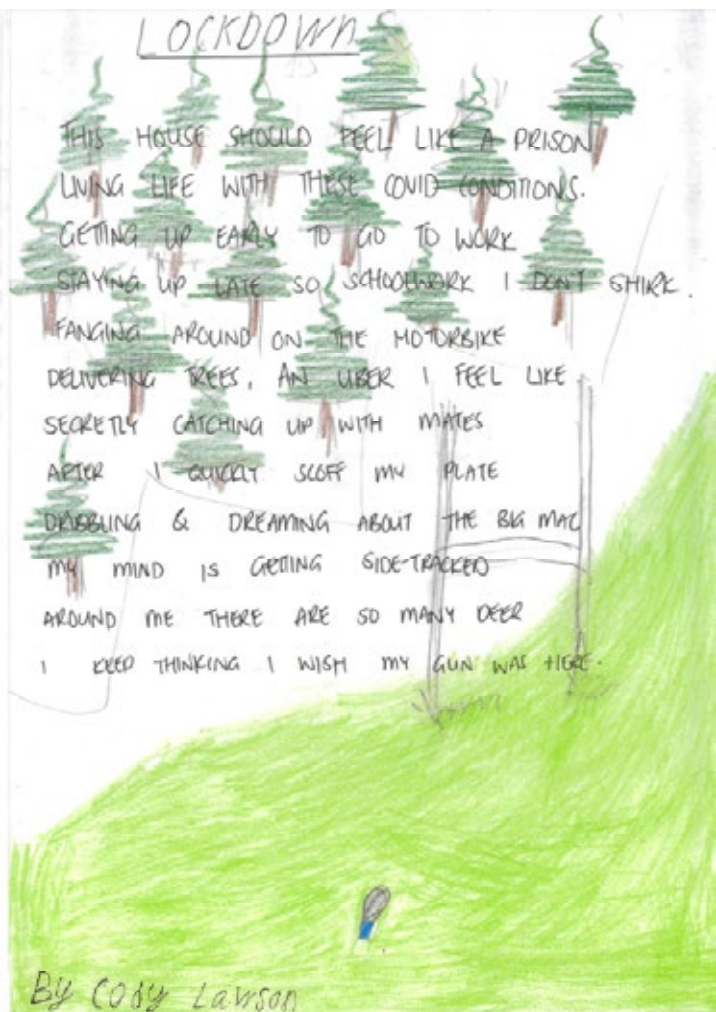 LOCKDOWN
THIS HOUSE SHOULD FEEL LIKE A PRISON
LIVING LIFE WITH THESE COVID CONDITIONS.
GETTING UP EARLY TO GO TO WORK
STAYING UP LATE SO SCHOOLWORK I DON'T SHIRK.
FANGING AROUND ON THE MOTORBIKE
DELIVERING TREES, AN UBER I FEEL LIKE
SECRETLY CATCHING UP WITH MATES
AFTER I QUICKLY SCOFF MY PLATE
DRIBBLING & DREAMING ABOUT THE BIG MAC
MY MIND IS GETTING SIDE-TRACKED
AROUND ME THERE ARE SO MANY DEER
I KEEP THINKING I WISH MY GUN WAS HERE.
By Cody Lawson